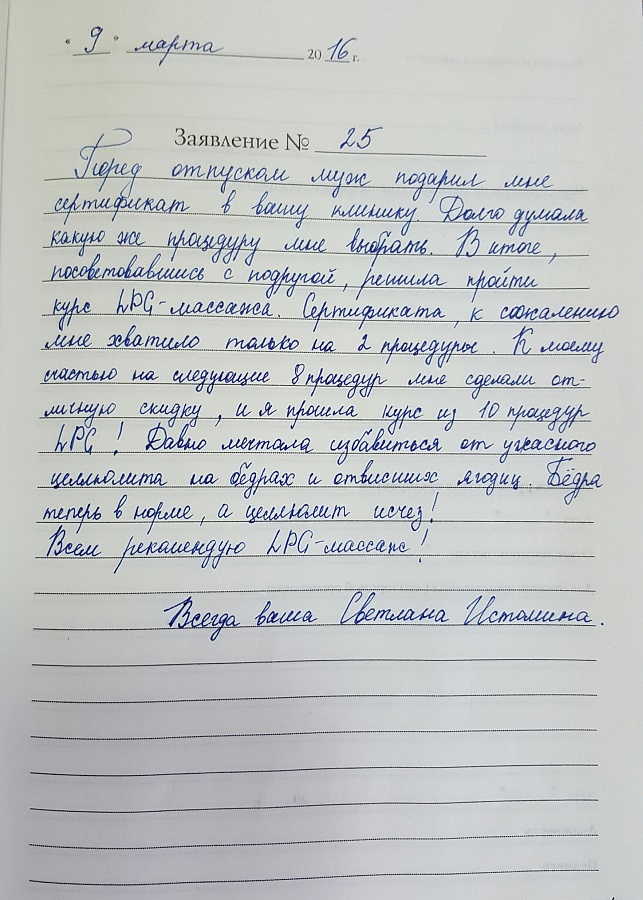 « 9 » марта 2016 г.
Заявление № 25
Перед отпуском муж подарил мне
сертификат в вашу клинику. Долго думала
какую же процедуру мне выбрать. В итоге,
посоветовавшись с подругой, решила пройти
курс LPG-массажа. Сертификата, к сожалению
мне хватило только на 2 процедуры. К моему
счастью на следующие 8 процедур мне сделали от-
личную скидку, и я прошла курс из 10 процедур
LPG! Давно мечтала избавиться от ужасного
целлюлита на бёдрах и отвисших ягодиц. Бёдра
теперь в норме, а целлюлит исчез!
Всем рекомендую LPG-массаж!
Всегда ваша Светлана Истомина.